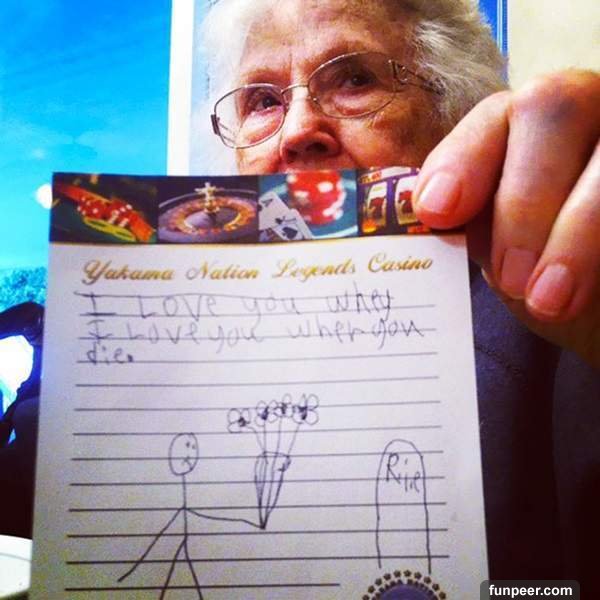 Yakama Nation Legends Casino
I Love you whey
I Love you when you
die.
R.I.P
funpeer.com